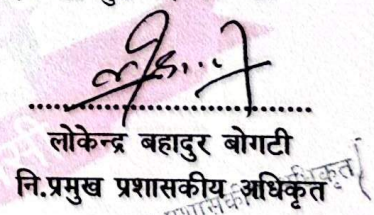 लोकेन्द्र बहादुर बोगटी
नि.प्रमुख प्रशासकीय अधिकृत